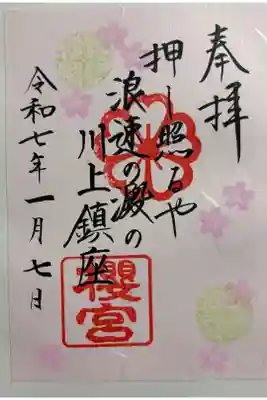 奉拝
押し照るや
浪速の瀲の
川上鎮座
櫻宮
令和七年一月七日